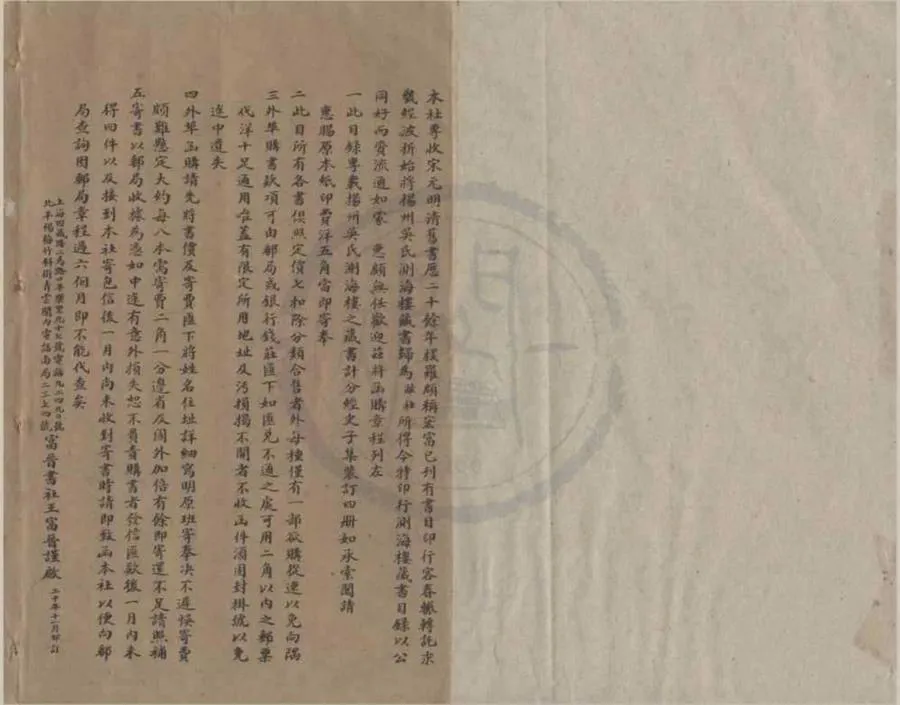 本社專收宋元明清舊書歷二十餘年搜羅頗稱宏富已刊有書目印行容春輾轉託求
幾經波折始將揚州吳氏測海樓藏書歸為敝社所得今特印行測海樓藏書目錄以公
同好而資流通如蒙 惠顧無任歡迎茲將函購章程列左
一此目錄專載揚州吳氏測海樓之藏書計分經史子集裝訂四册如承索閱請
惠賜原本紙印費洋五角當即寄奉
二此目所有各書俱照定價七扣除分類合售者外每種僅有一部欲購從速以免向隅
三外埠購書款項可由郵局或銀行錢莊匯下如匯兌不通之處可用二角以内之郵票
代洋十足通用唯蓋有限定所用地址及污損揭不開者不收函件須固封掛號以免
途中遺失
四外埠函購請先將書價及寄費匯下將姓名住址詳細寫明原班寄奉决不遲悞寄費
頗難懸定大約每八本需寄費二角一分邊省及國外加倍有餘即寄還不足請照補
五寄書以郵局收據為憑如中途有意外損失恕不負責購書者發信匯欵後一月内未
得回件以及接到本社寄包信後一月内尚未收到寄書時請即致函本社以便向郵
局查詢因郵局章程過六個月即不能代查矣
上海四馬路口樂里九十七號電話九二四九〇號
北平楊梅竹斜街青雲閣内電話南局二三七四號
富晉書社王富晉謹啟 二十年十一月印訂